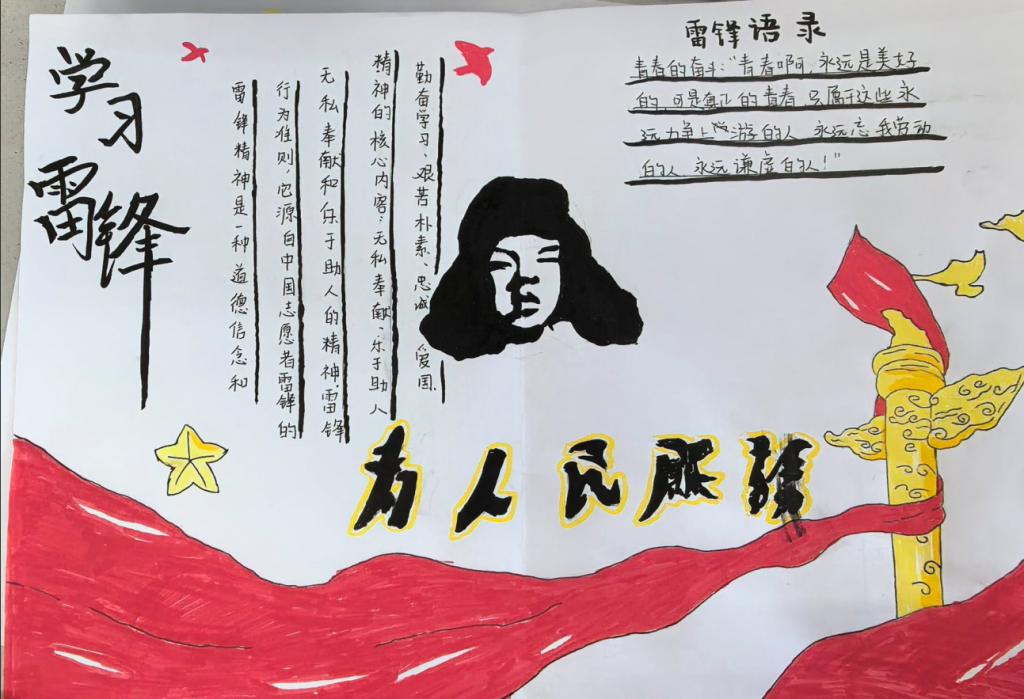 学习
雷锋
雷锋精神是一种道德信念和
行为准则,它源自中国志愿者雷锋的
无私奉献和乐于助人的精神.雷锋
精神的核心内容:无私奉献、乐于助人
勤奋学习、艰苦朴素、忠诚 爱国.
雷锋语录
青春的奋斗:“青春啊,永远是美好
的,可是真正的青春 只属于这些永
远力争上游的人 永远忘我劳动
的人 永远谦虚的人!”
為人民服務